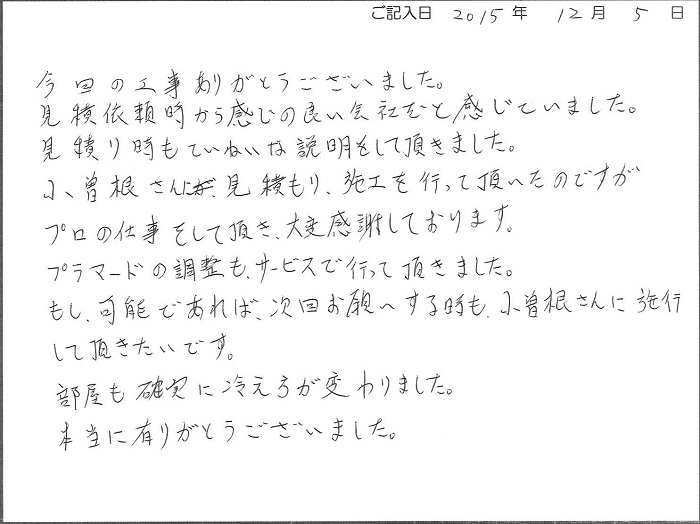 ご記入日 2015年 12月 5日
今回の工事ありがとうございました。
見積依頼時から感じの良い会社だと感じていました。
見積り時もていねいな説明をして頂きました。
小曽根さんに、見積もり、施工を行って頂いたのですが
プロの仕事をして頂き、大変感謝しております。
プラマードの調整も、サービスで行って頂きました。
もし、可能であれば、次回お願いする時も、小曽根さんに施行
して頂きたいです。
部屋も確実に冷え方が変わりました。
本当に有りがとうございました。